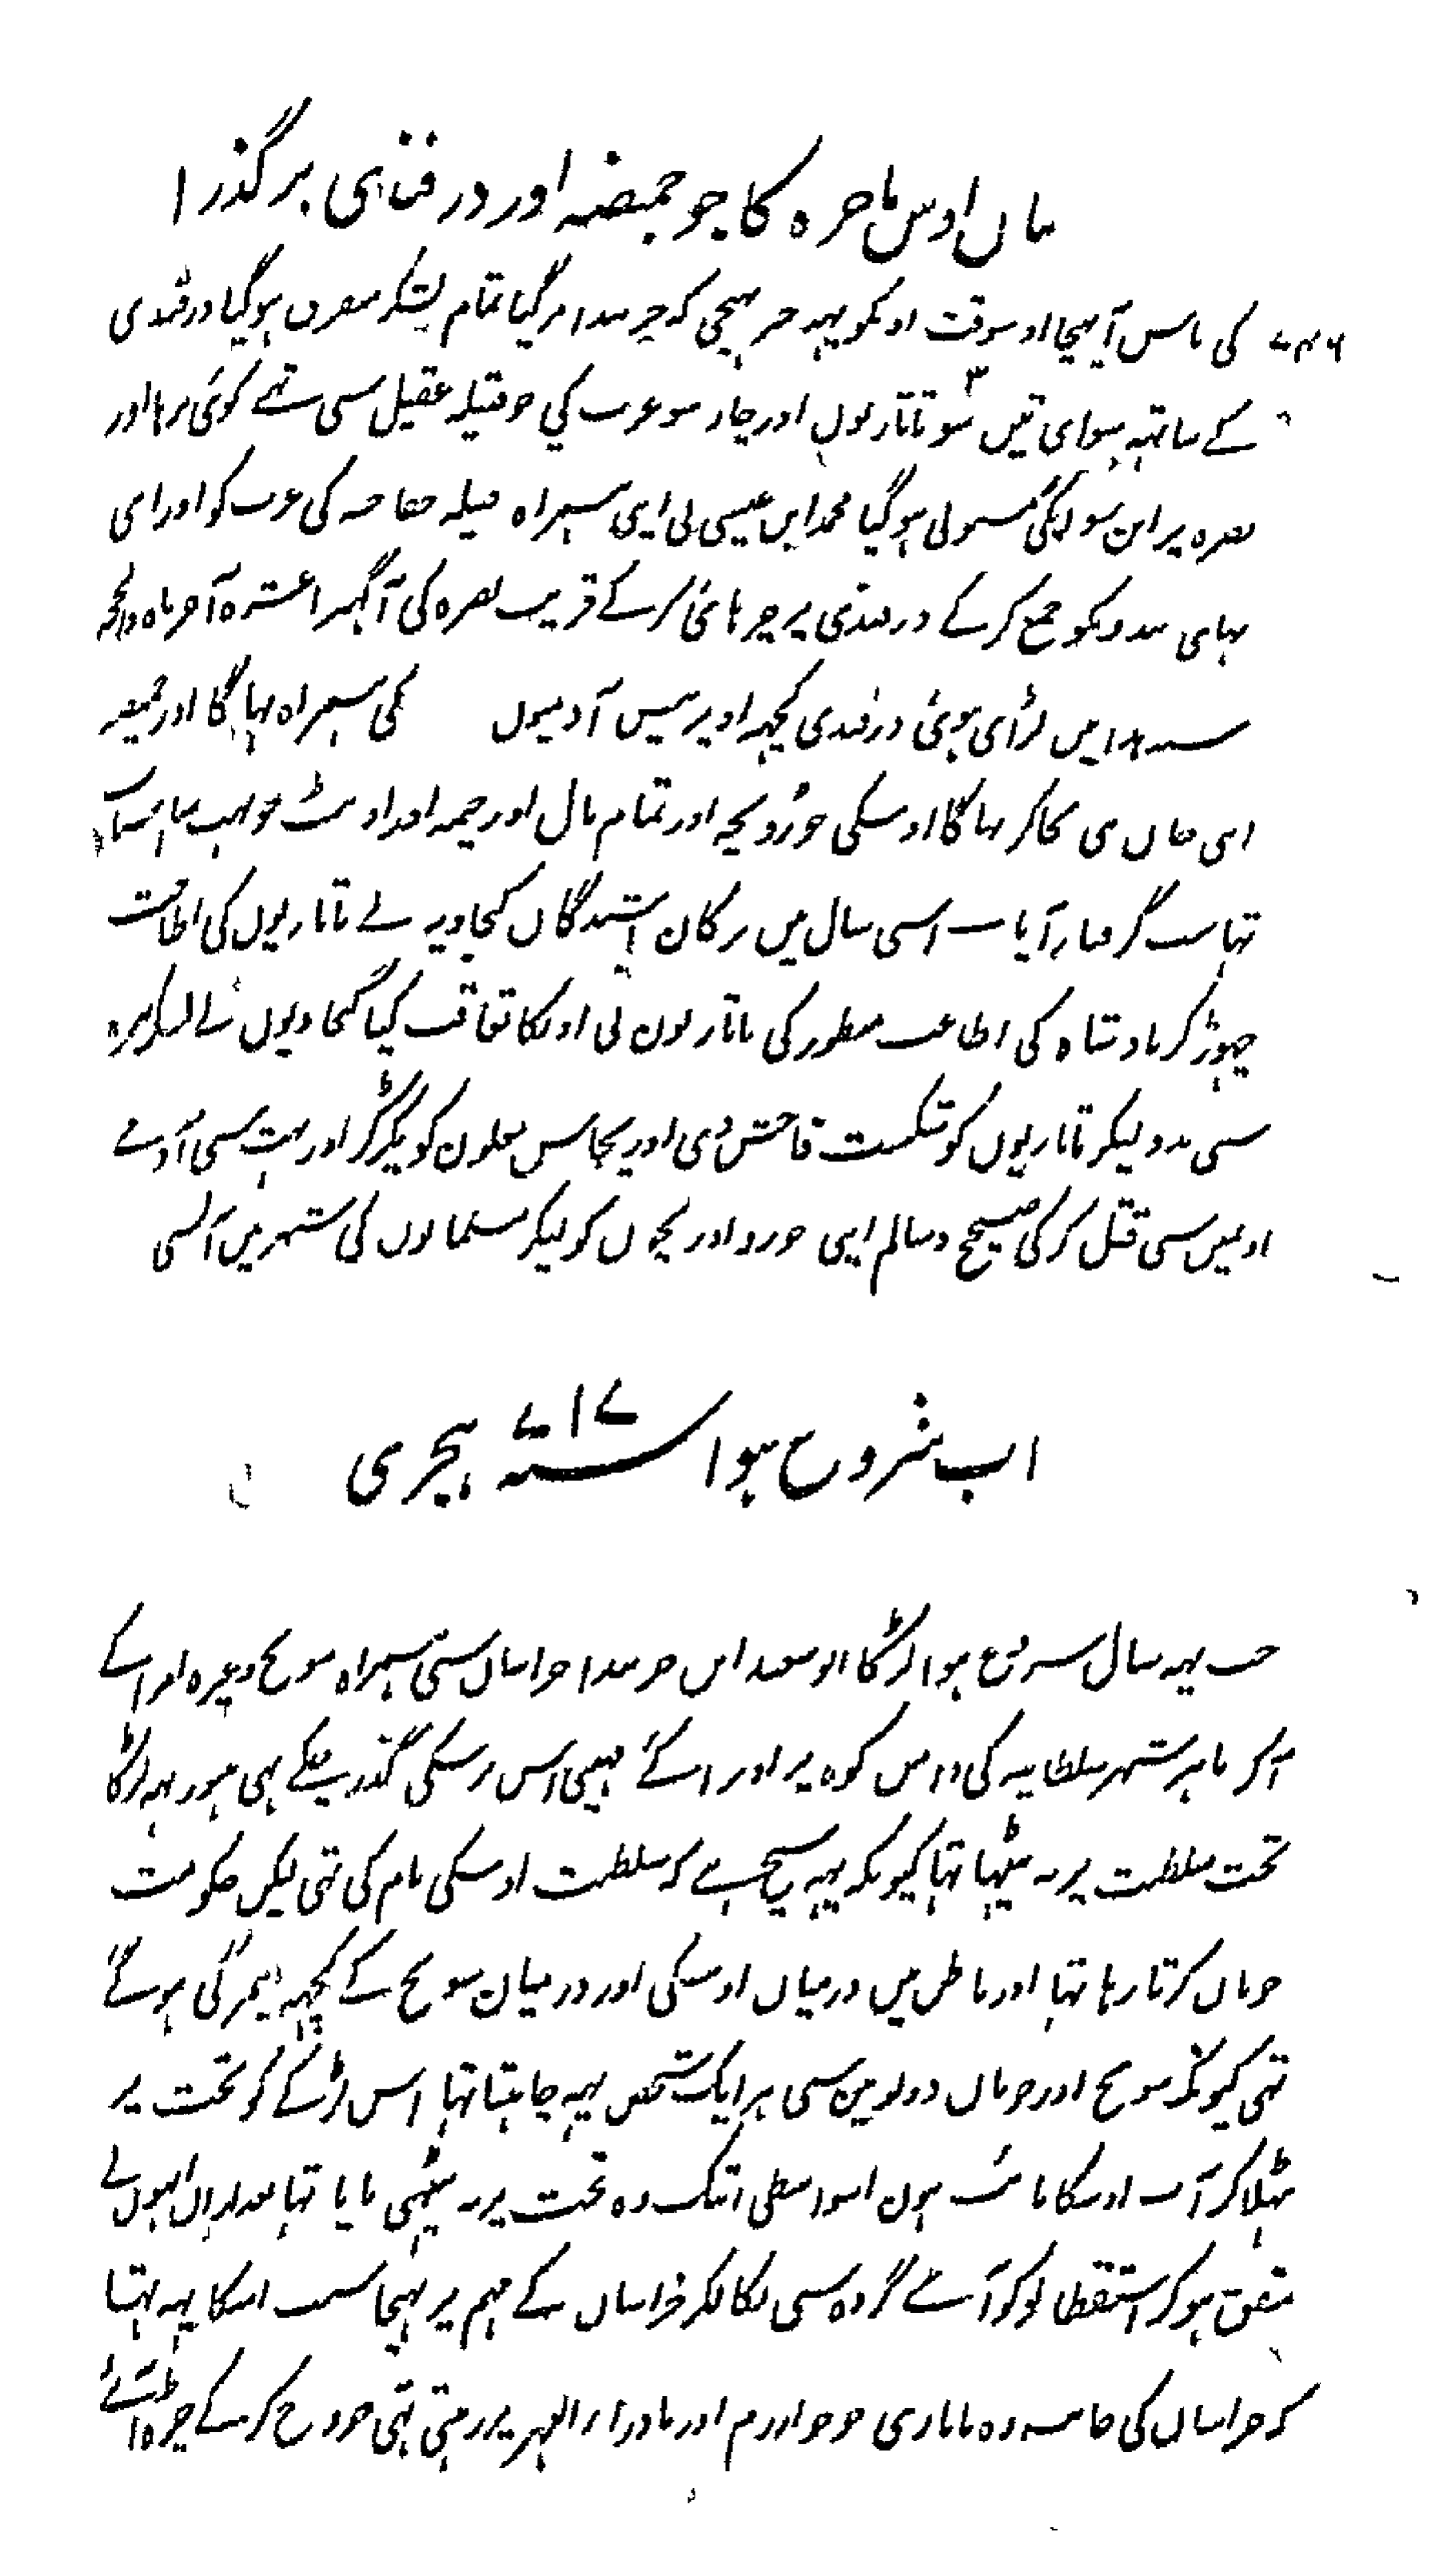 بیان اوس ماجرہ کا جو حمیضہ اور درفندی پر گذرا
۷۴۶ کی پاس آ پہنچا اوسوقت اونکو یہہ خبر پہنچی کہ خربندا مر گیا تمام لشکر متفرق ہو گیا درفندی
کے ساتہہ سوای تین سو تاتاریوں اور چار سو عرب کی جو قبیلہ عقیل سی تہے کوئی نرہا اور
بصرہ پر ابن سوایکی مستولی ہو گیا محمد ابن عیسی نی اپنی ہمراہ قبیلہ خفاجہ کی عرب کو اور اپنی
بہای بندونکو جمع کر کے درفندی پر چڑہائی کر کے قریب بصرہ کی آ گہیرا عشرہ آخر ماہ ذالحجہ
سنہ میں لڑای ہوئی درفندی کچہہ اوپر بیس آدمیوں کی ہمراہ بہاگا اور حمیضہ
اپنی جان ہی بچا کر بہاگا اوسکی جورو بچہ اور تمام مال اور خیمہ اور اونٹ جو
تہا سب گرفتار آیا اسی سال میں ترکمان باشندگان کنجاویہ نے تاتاریوں کی اطاعت
چہوڑ کر بادشاہ کی اطاعت منظور کی تاتاریون نی اونکا تعاقب کیا کنجاویوں نے لشکر البیرہ
سی مدد لیکر تاتاریوں کو شکست فاحش دی اور پچاس مغلون کو پکڑ کر اور بہت سی آدمے
اونمیں سی قتل کر کی صحیح و سالم اپنی جورو اور بچوں کو لیکر مسلمانوں کی شہر میں آ بسی
اب شروع ہوا سنہ ۷۱۷ ہجری
جب یہہ سال شروع ہوا لڑکا ابو سعید ابن خربندا خراسان سی ہمراہ سونج وغیرہ امرا کے
آ کر باہر شہر سلطانیہ کی دامن کوہ پر اور اسکے مہینی اس برسکی گذر چکے ہی ہنوز یہہ لڑکا
تخت سلطنت پر نہ بیٹہا تہا کیونکہ یہہ سچ ہے کہ سلطنت اوسکی نام کی تہی لیکن حکومت
جوبان کرتا رہا تہا اور باطن میں درمیان اوسکی اور درمیان سونج کے کچہہ بیمزگی ہو گے
تہی کیونکہ سونج اور جوبان دونوین سی ہر ایک شخص یہہ چاہتا تہا اس لڑکے کو تخت پر
بٹہلا کر آپ اوسکا نائب ہون اسواسطی ابتک وہ تخت پر نہ بیٹہی پایا تہا بعد ازان انہوں نے
متفق ہو کر استقطلو کو آپنے گروہ سی نکالکر خراسان کے مہم پر بہیجا سبب اسکا یہہ تہا
کہ خراسان کی جانب وہ تاتاری جو خوارزم اور ماوراء النہر پر رہتی تہی خروج کر کے چڑہ آئے